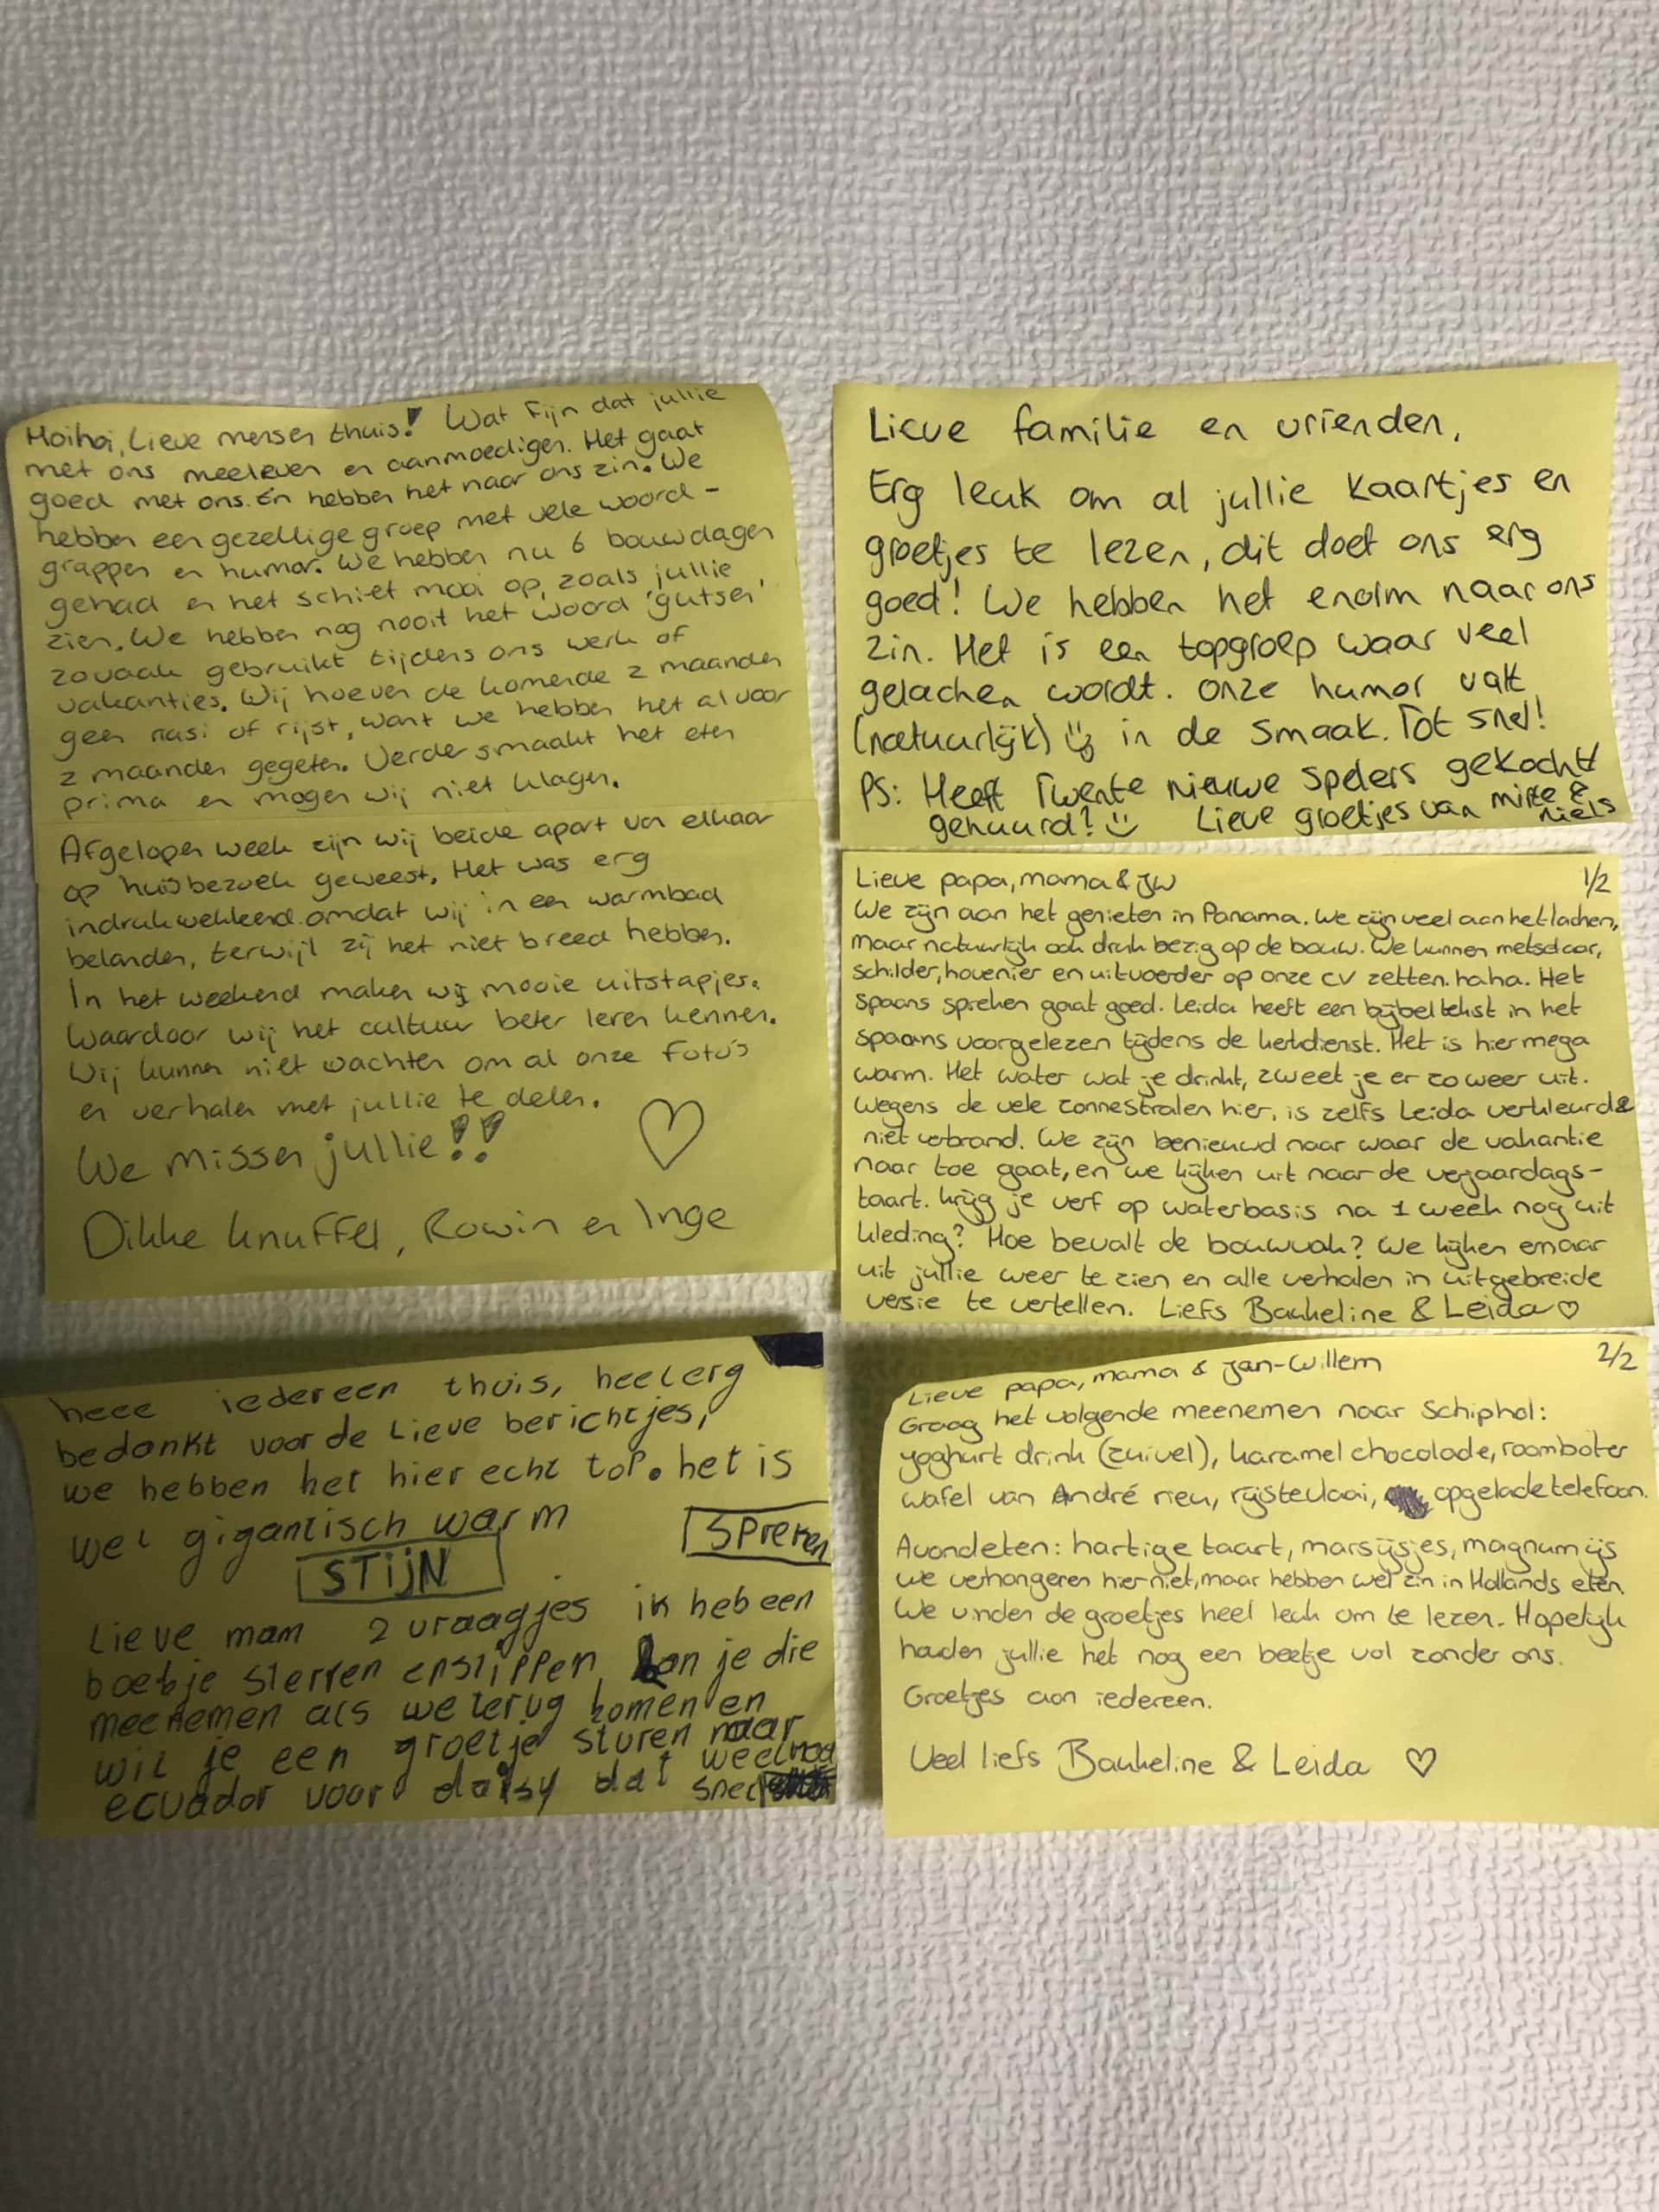 Hoihoi, Lieve mensen thuis! Wat fijn dat jullie
met ons meeleven en aanmoedigen. Het gaat
goed met ons. En hebben het naar ons zin. We
hebben een gezellige groep met vele woord-
grappen en humor. We hebben nu 6 bouwdagen
gehad en het schiet mooi op, zoals jullie
zien. We hebben nog nooit het woord 'gutsen'
zovaak gebruikt tijdens ons werk of
vakanties. Wij hoeven de komende 2 maanden
geen nasi of rijst, want we hebben het al voor
2 maanden gegeten. Verder smaakt het eten
prima en mogen wij niet klagen.
Afgelopen week zijn wij beide apart van elkaar
op huisbezoek geweest. Het was erg
indrukwekkend omdat wij in een warmbad
belanden, terwijl zij het niet breed hebben.
In het weekend maken wij mooie uitstapjes.
Waardoor wij het cultuur beter leren kennen.
Wij kunnen niet wachten om al onze foto's
en verhalen met jullie te delen.
We missen jullie!!
Dikke knuffel, Rowin en Inge
Lieve familie en vrienden,
Erg leuk om al jullie kaartjes en
groetjes te lezen, dit doet ons erg
goed! We hebben het enorm naar ons
zin. Het is een topgroep waar veel
gelachen wordt. Onze humor valt
(natuurlijk) in de smaak. Tot snel!
PS: Heeft Twente nieuwe spelers gekocht/
gehuurd? Lieve groetjes van mirre &
niels
Lieve papa, mama & JW 1/2
We zijn aan het genieten in Panama. We zijn veel aan het lachen,
maar natuurlijk ook druk bezig op de bouw. We kunnen metselaar,
schilder, hovenier en uitvoerder op onze CV zetten. haha. Het
spaans spreken gaat goed. Leida heeft een bijbeltekst in het
spaans voorgelezen tijdens de kerkdienst. Het is hier mega
warm. Het water wat je drinkt, zweet je er zo weer uit.
Wegens de vele zonnestralen hier, is zelfs Leida verkleurd &
niet verbrand. We zijn benieuwd naar waar de vakantie
naar toe gaat, en we kijken uit naar de verjaardags-
taart. krijg je verf op waterbasis na 1 week nog uit
kleding? Hoe bevalt de bouwvak? We kijken ernaar
uit jullie weer te zien en alle verhalen in uitgebreide
versie te vertellen. Liefs Baukeline & Leida ♡
heee iedereen thuis, heel erg
bedankt voor de lieve berichtjes,
we hebben het hier echt top. het is
wel gigantisch warm
STIJN SPreken
Lieve mam 2 vraagjes ik heb een
boetje sterren enslippen kan je die
meenemen als we terug komen en
wil je een groetje sturen naar
ecuador voor daisy dat we
snel
Lieve papa, mama & Jan-Willem 2/2
Graag het volgende meenemen naar Schiphol:
yoghurt drink (zuivel), karamel chocolade, roomboter
wafel van André rieu, rijstevlaai, opgelade telefoon.
Avondeten: hartige taart, marsijsjes, magnum ijs
We verhongeren hier niet, maar hebben wel zin in Hollands eten.
We vinden de groetjes heel leuk om te lezen. Hopelijk
houden jullie het nog een beetje vol zonder ons.
Groetjes aan iedereen.
Veel liefs Baukeline & Leida ♡